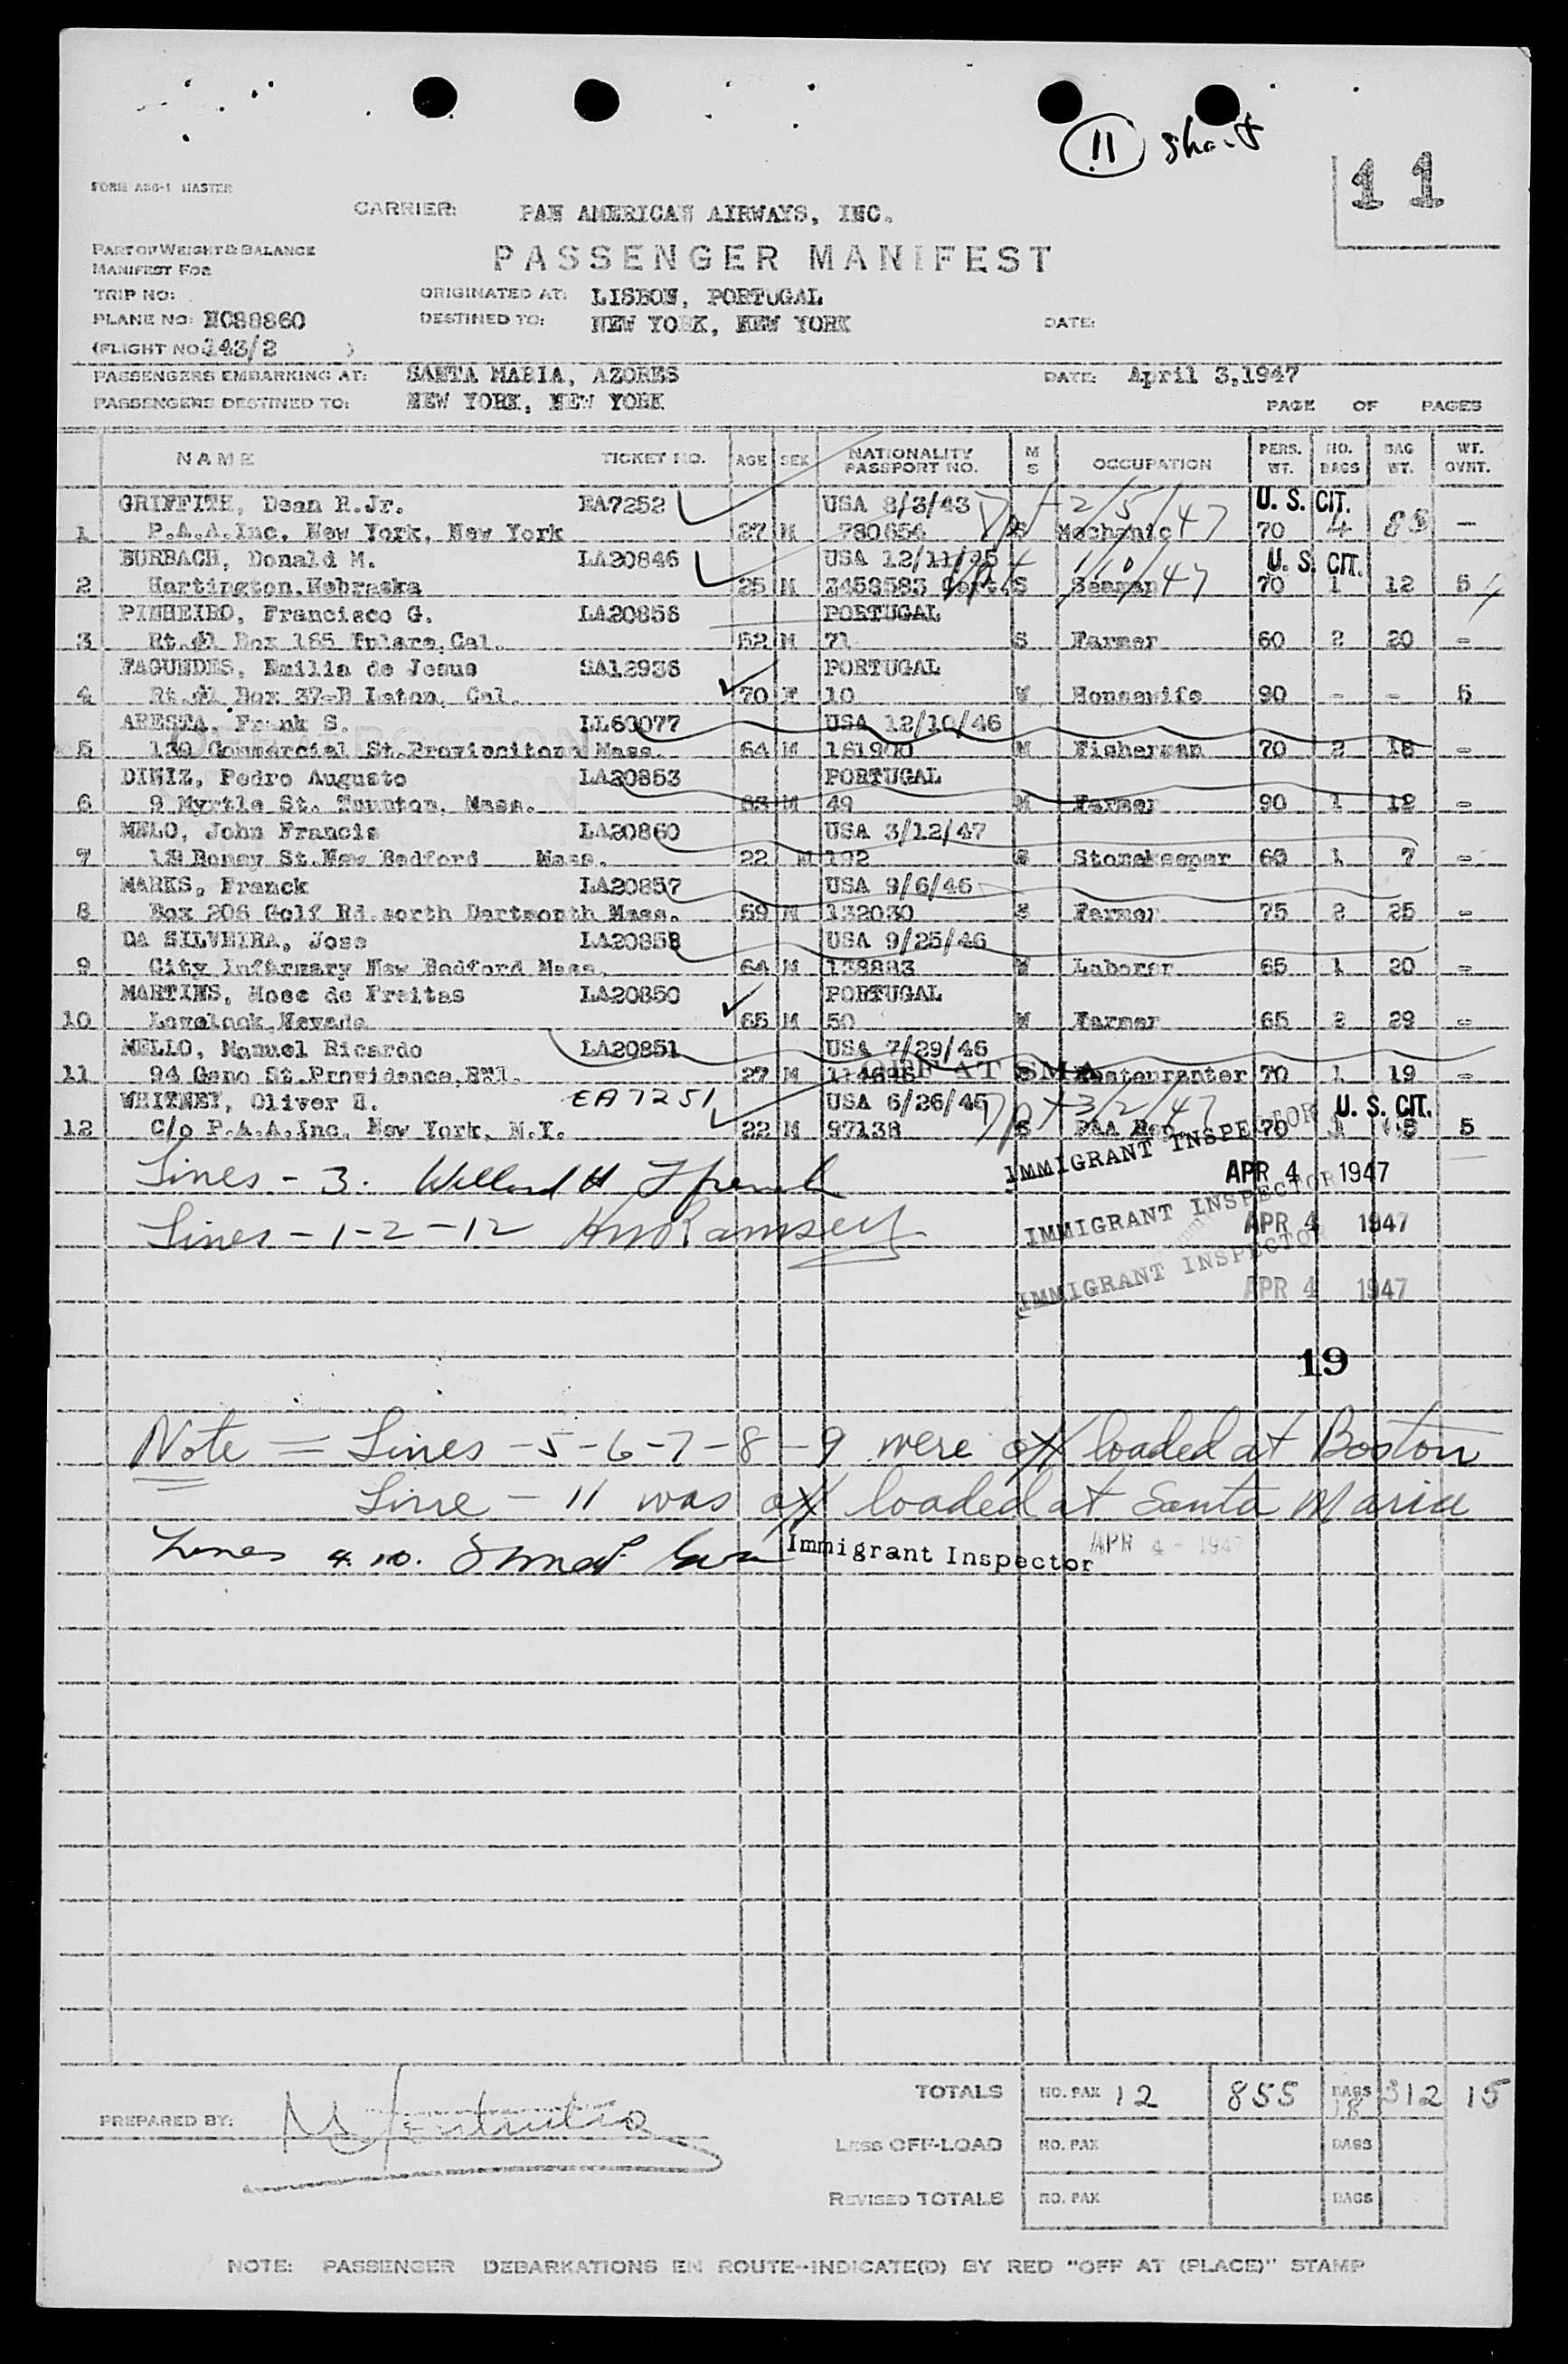 11 short
11
FORM A86-1 MASTER
CARRIER: PAN AMERICAN AIRWAYS, INC.
PART OF WEIGHT & BALANCE
MANIFEST FOR
PASSENGER MANIFEST
TRIP NO:
ORIGINATED AT: LISBON, PORTUGAL
PLANE NO: NC88860
DESTINED TO: NEW YORK, NEW YORK
DATE:
(FLIGHT NO 143/2 )
PASSENGERS EMBARKING AT: SANTA MARIA, AZORES
DATE: April 3,1947
PASSENGERS DESTINED TO: NEW YORK, NEW YORK
PAGE OF PAGES
NAME TICKET NO. AGE SEX NATIONALITY PASSPORT NO. M S OCCUPATION PERS. WT. NO. BAGS BAG WT. WT. OVNT.
GRIFFITH, Dean R.Jr. EA7252 USA 8/3/43 2/5/47 U. S. CIT.
1 P.A.A.Inc. New York, New York 27 M 780654 S Mechanic 70 4 –
BURBACH, Donald M. LA20846 USA 12/11/45 1/10/47 U. S. CIT.
2 Hartington,Nebraska 25 M Z453583 Cert. S Seaman 70 1 12 5
PINHEIRO, Francisco G. LA20856 PORTUGAL
3 Rt.#1 Box 165 Tulare,Cal. 52 M 71 S Farmer 60 2 20 -
FAGUNDES, Emilia de Jesus SA12936 PORTUGAL
4 Rt.#1 Box 37-B Laton, Cal. 70 F 10 W Housewife 90 - - 5
ARESTA, Frank S. LL63077 USA 12/10/46
5 139 Commercial St.Provincitown Mass. 64 M 161900 M Fisherman 70 2 18 -
DINIZ, Pedro Augusto LA20853 PORTUGAL
6 9 Myrtle St. Taunton, Mass. 63 M 49 M Farmer 90 1 12 -
MELO, John Francis LA20860 USA 3/12/47
7 Boney St.New Bedford Mass. 22 M 192 S Storekeeper 60 1 7 -
MARKS, Franck LA20857 USA 9/6/46
8 Box 206 Golf Rd.north Dartmouth Mass. 59 M 132030 S Farmer 75 2 25 -
DA SILVEIRA, Jose LA20858 USA 9/25/46
9 City Infirmary New Bedford Mass. 64 M 138883 Laborer 65 1 20 -
MARTINS, Hose de Freitas LA20850 PORTUGAL
10 Lovelock,Nevada 65 M 50 W Farmer 65 2 29 -
MELLO, Manuel Ricardo LA20851 USA 7/29/46
OFF AT SMA
11 94 Gano St.Providence,R.I. 27 M 114646 Restauranter 70 1 19 -
WHITNEY, Oliver H. EA7251 USA 6/26/45 3/2/47 U. S. CIT.
12 c/o P.A.A.Inc. New York, N.Y. 22 M 97138 S PAA Rep. 70 5
Lines - 3. Willard H French
IMMIGRANT INSPECTOR
APR 4 1947
Lines - 1-2-12 Ramsey
IMMIGRANT INSPECTOR
APR 4 1947
IMMIGRANT INSPECTOR
APR 4 1947
19
Note = Lines -5-6-7-8-9 were off loaded at Boston
Line - 11 was off loaded at Santa Maria
Lines 4. 10.
Immigrant Inspector APR 4 - 1947
TOTALS NO. PAX 12 855 BAGS 18 312 15
PREPARED BY:
LESS OFF-LOAD NO. PAX BAGS
REVISED TOTALS NO. PAX BAGS
NOTE: PASSENGER DEBARKATIONS EN ROUTE--INDICATE(D) BY RED "OFF AT (PLACE)" STAMP